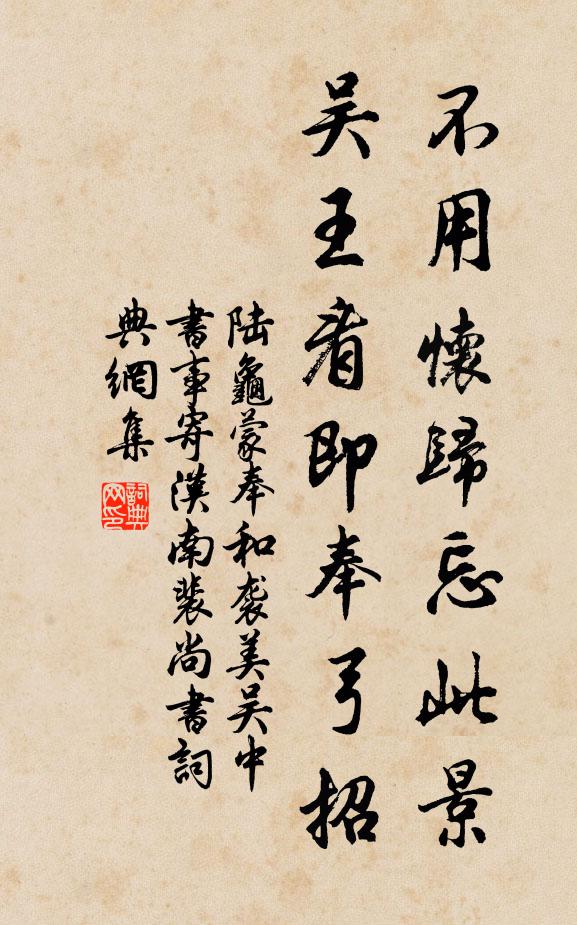 不用懷歸忘此景
吴王看即奉弓招
陆龜蒙奉和袭美吴中
書事寄漢南裴尚書詞
典網集
詞典
网印